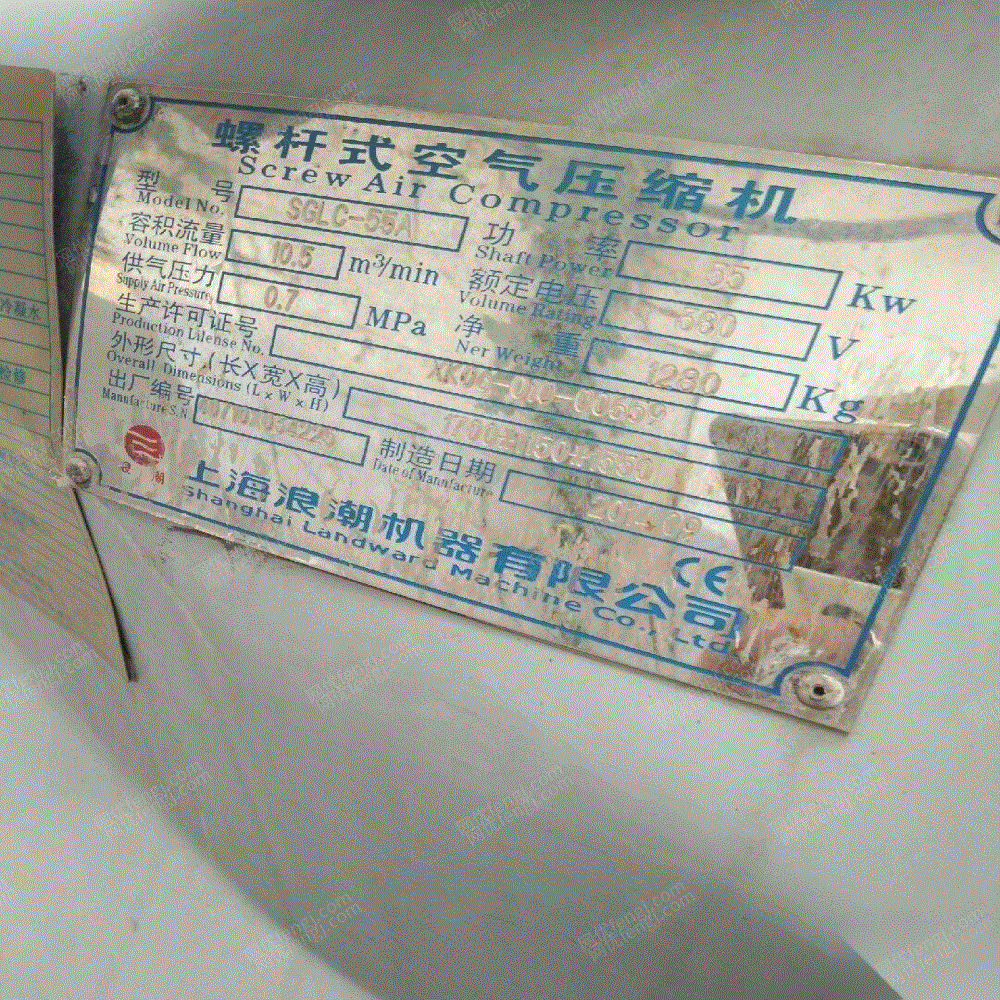 螺杆式空气压缩机
Screw Air Compressor
型 号 SGLC-55A 功 率 55 Kw
Model No. Shaft Power
容积流量 10.5 m³/min 额定电压 380 V
Volume Flow Volume Rating
供气压力 0.7 MPa 净 重 1280 Kg
Supply Air Pressure Ner Weight
生产许可证号 XK06-010-00559
Production Lilense No.
外形尺寸(长X宽X高)
Overall Dimensions (L x W x H)
出厂编号 制造日期
Manufacture S.N Date of Manufacture
上海浪潮机器有限公司 CE
Shanghai Landward Machine Co., Ltd.
冷凝水
检修